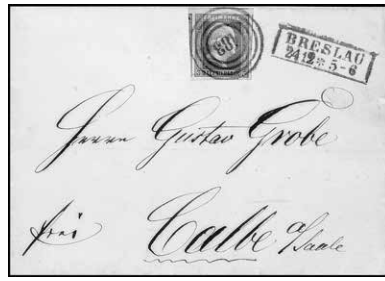 BRESLAU
24 12 * 5-6
Herrn Gustav Grobe
frei Calbe a/Saale